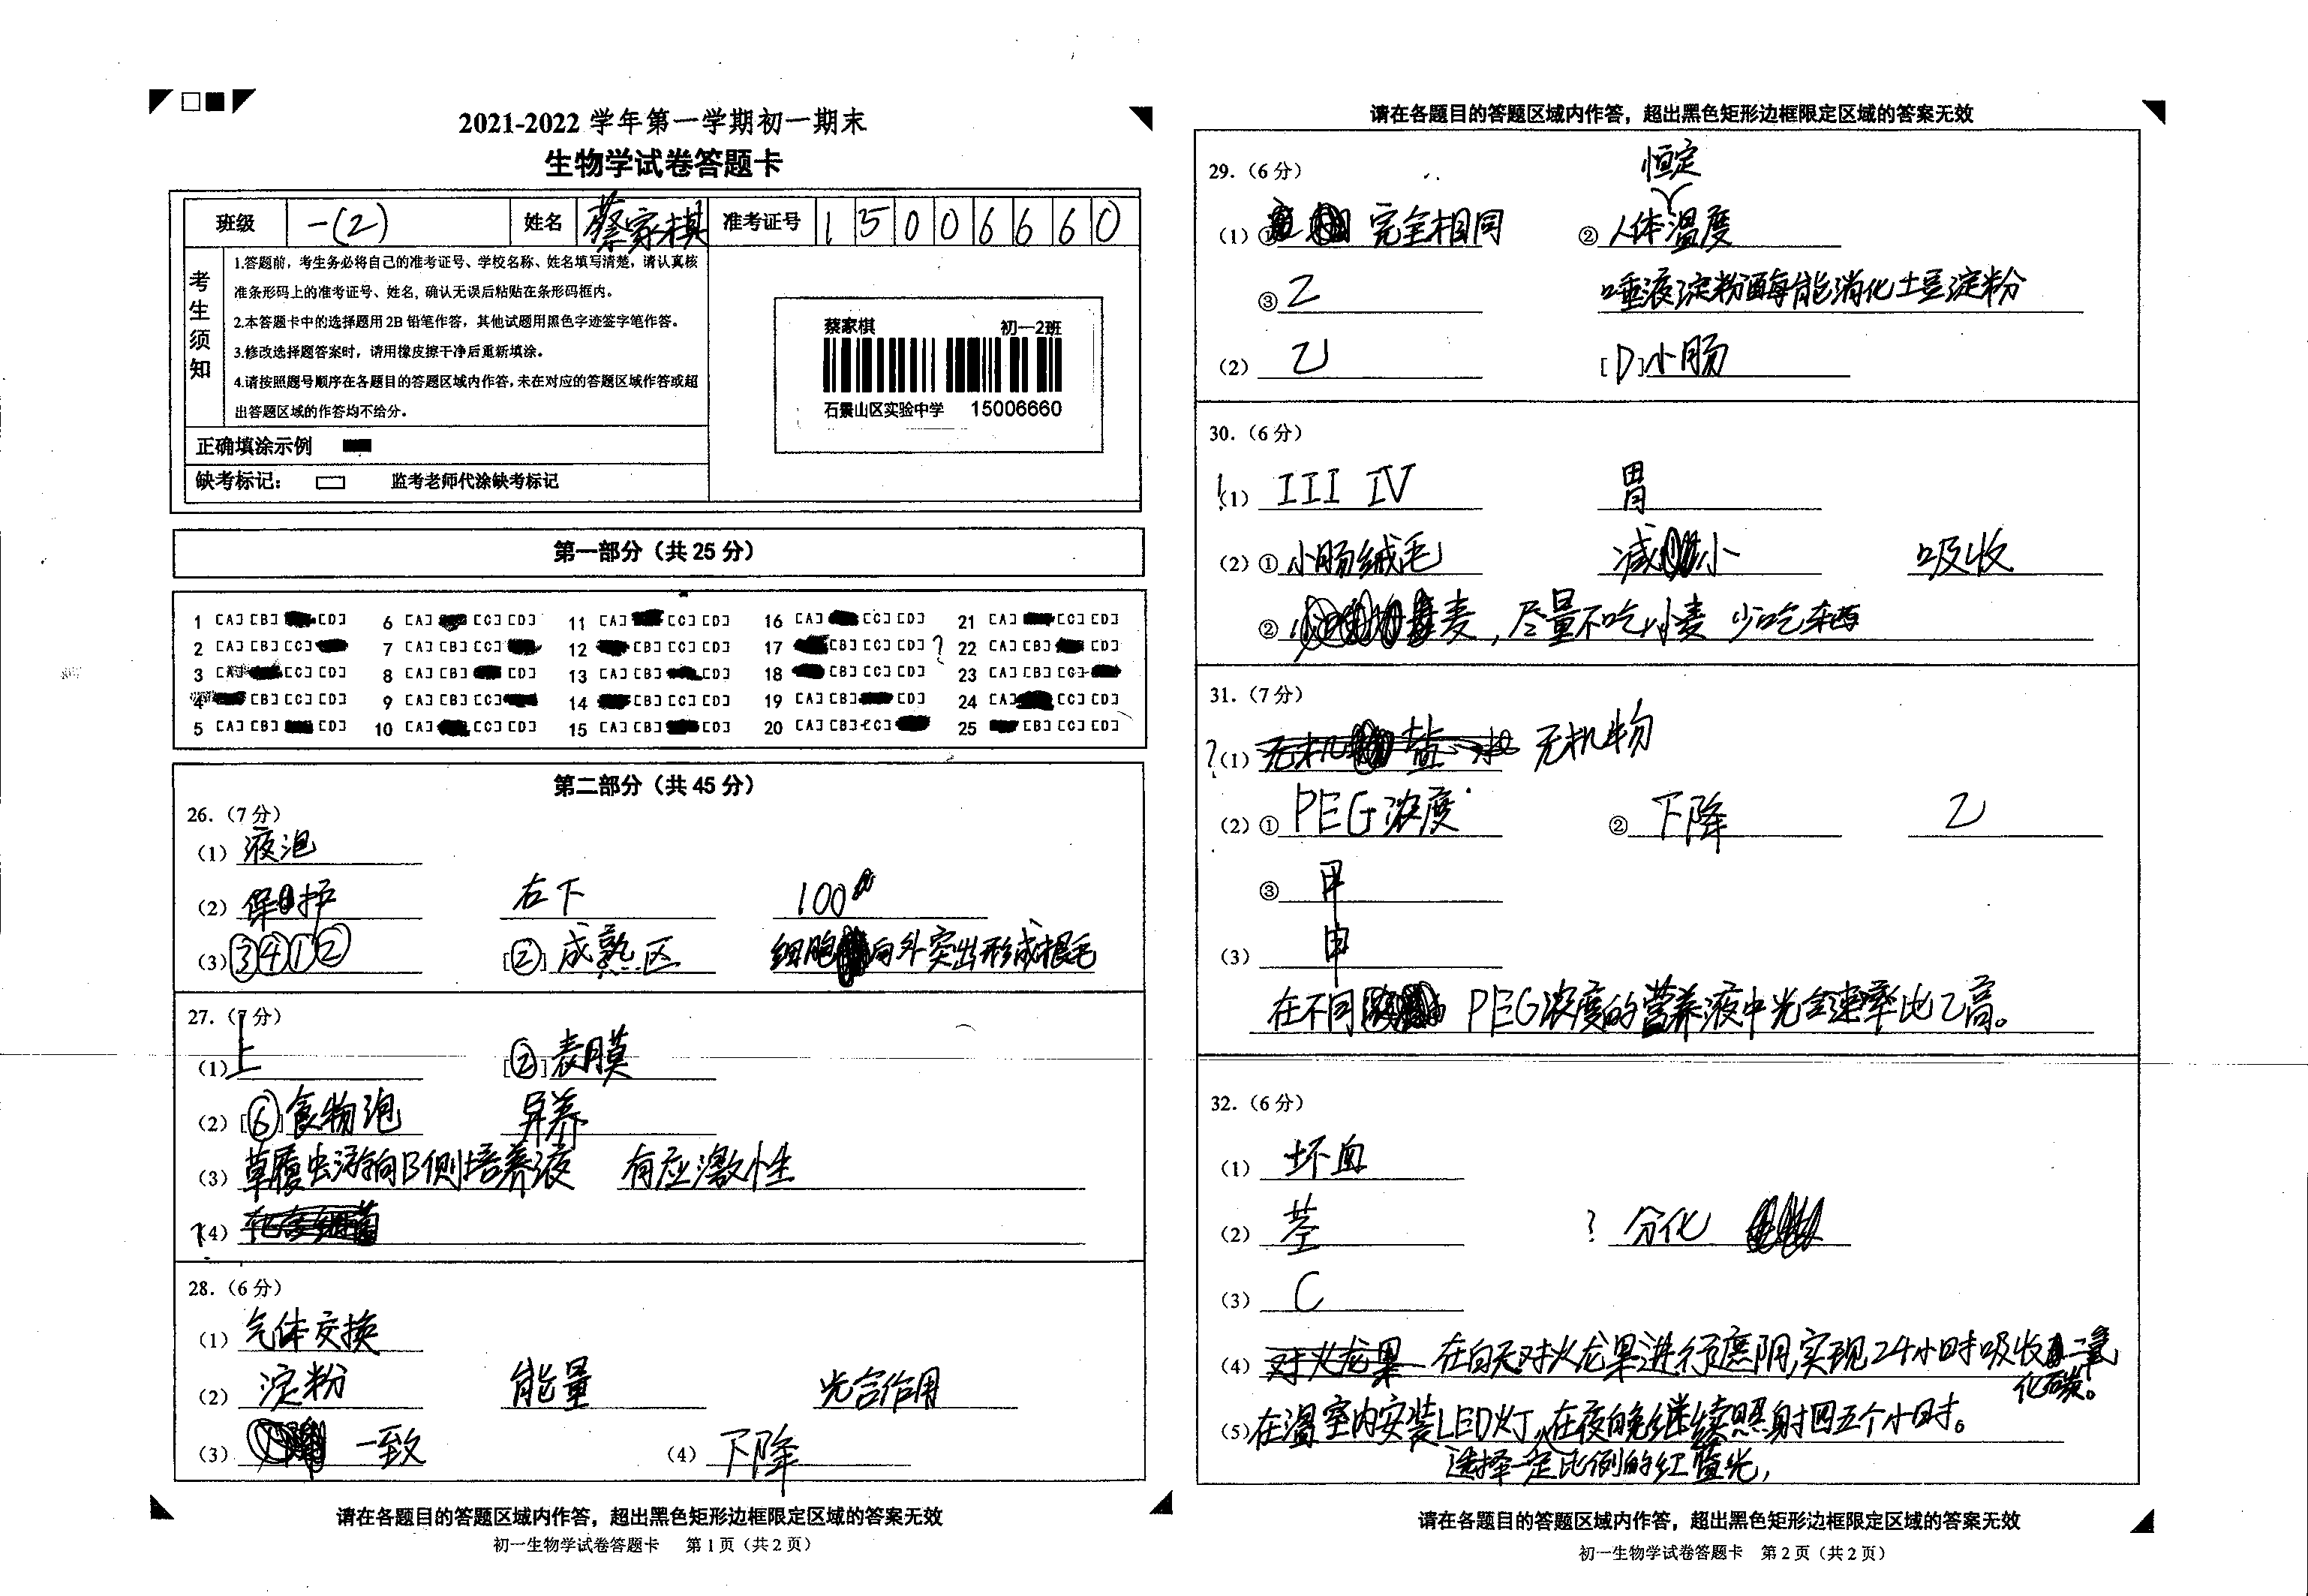 2021-2022 学年第一学期初一期末
生物学试卷答题卡
班级 一(2) 姓名 蔡家棋 准考证号 1 5 0 0 6 6 6 0
考生须知
1.答题前，考生务必将自己的准考证号、学校名称、姓名填写清楚，请认真核
准条形码上的准考证号、姓名，确认无误后粘贴在条形码框内。
2.本答题卡中的选择题用 2B 铅笔作答，其他试题用黑色字迹签字笔作答。
3.修改选择题答案时，请用橡皮擦干净后重新填涂。
4.请按照题号顺序在各题目的答题区域内作答，未在对应的答题区域作答或超
出答题区域的作答均不给分。
蔡家棋 初一2班
石景山区实验中学 15006660
正确填涂示例
缺考标记： 监考老师代涂缺考标记
第一部分（共 25 分）
1 [A] [B] [D] 6 [A] [C] [D] 11 [A] [C] [D] 16 [A] [C] [D] 21 [A] [C] [D]
2 [A] [B] [C] 7 [A] [B] [C] 12 [B] [C] [D] 17 [B] [C] [D] ? 22 [A] [B] [D]
3 [A] [C] [D] 8 [A] [B] [D] 13 [A] [B] [D] 18 [B] [C] [D] 23 [A] [B] [C]
4 [B] [C] [D] 9 [A] [B] [C] 14 [B] [C] [D] 19 [A] [B] [D] 24 [A] [C] [D]
5 [A] [B] [D] 10 [A] [C] [D] 15 [A] [B] [D] 20 [A] [B] [C] 25 [B] [C] [D]
第二部分（共 45 分）
26.（7 分）
（1）液泡
（2）保护 右下 100
（3）③④①② [②]成熟区 细胞向外突出形成根毛
27.（7 分）
（1）上 [②]表膜
（2）[⑥]食物泡 异养
（3）草履虫游向B侧培养液 有应激性
（4）
28.（6 分）
（1）气体交换
（2）淀粉 能量 光合作用
（3）一致 （4）下降
请在各题目的答题区域内作答，超出黑色矩形边框限定区域的答案无效
初一生物学试卷答题卡 第 1 页（共 2 页）
请在各题目的答题区域内作答，超出黑色矩形边框限定区域的答案无效
29.（6 分）
恒定
（1）① 完全相同 ②人体温度
③2 唾液淀粉酶能消化土豆淀粉
（2）乙 [D]小肠
30.（6 分）
（1）III IV 胃
（2）①小肠绒毛 减小 吸收
② 麦，尽量不吃小麦 少吃东西
31.（7 分）
?（1）无机物
（2）①PEG浓度 ②下降 乙
③甲
（3）甲
在不同 PEG浓度的营养液中光合速率比乙高。
32.（6 分）
（1）坏血
（2）茎 ? 分化
（3）C
（4）对火龙果 在白天对火龙果进行遮阴,实现24小时吸收二氧
化碳。
（5）在温室内安装LED灯,在夜晚继续照射四五个小时。
选择一定比例的红蓝光，
请在各题目的答题区域内作答，超出黑色矩形边框限定区域的答案无效
初一生物学试卷答题卡 第 2 页（共 2 页）